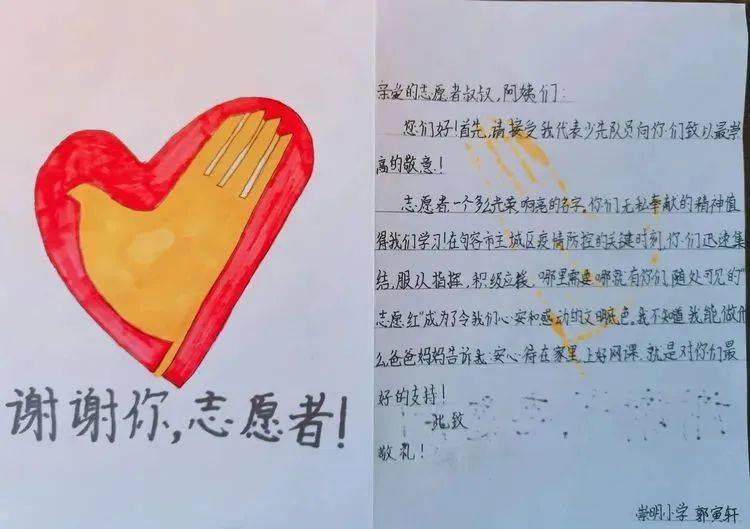 谢谢你,志愿者!
亲爱的志愿者叔叔,阿姨们:
您们好!首先,请接受我代表少先队员向你们致以最崇
高的敬意!
志愿者一个多么光荣响亮的名字,你们无私奉献的精神值
得我们学习!在句容市主城区疫情防控的关键时刻,你们迅速集
结,服从指挥,积极应援,哪里需要哪就有你们,随处可见的"
志愿红"成为了令我们心安和感动的文明底色,我不知道我能做什
么爸爸妈妈告诉我:安心待在家里上好网课,就是对你们最
好的支持!
此致
敬礼!
崇明小学 郭寅轩